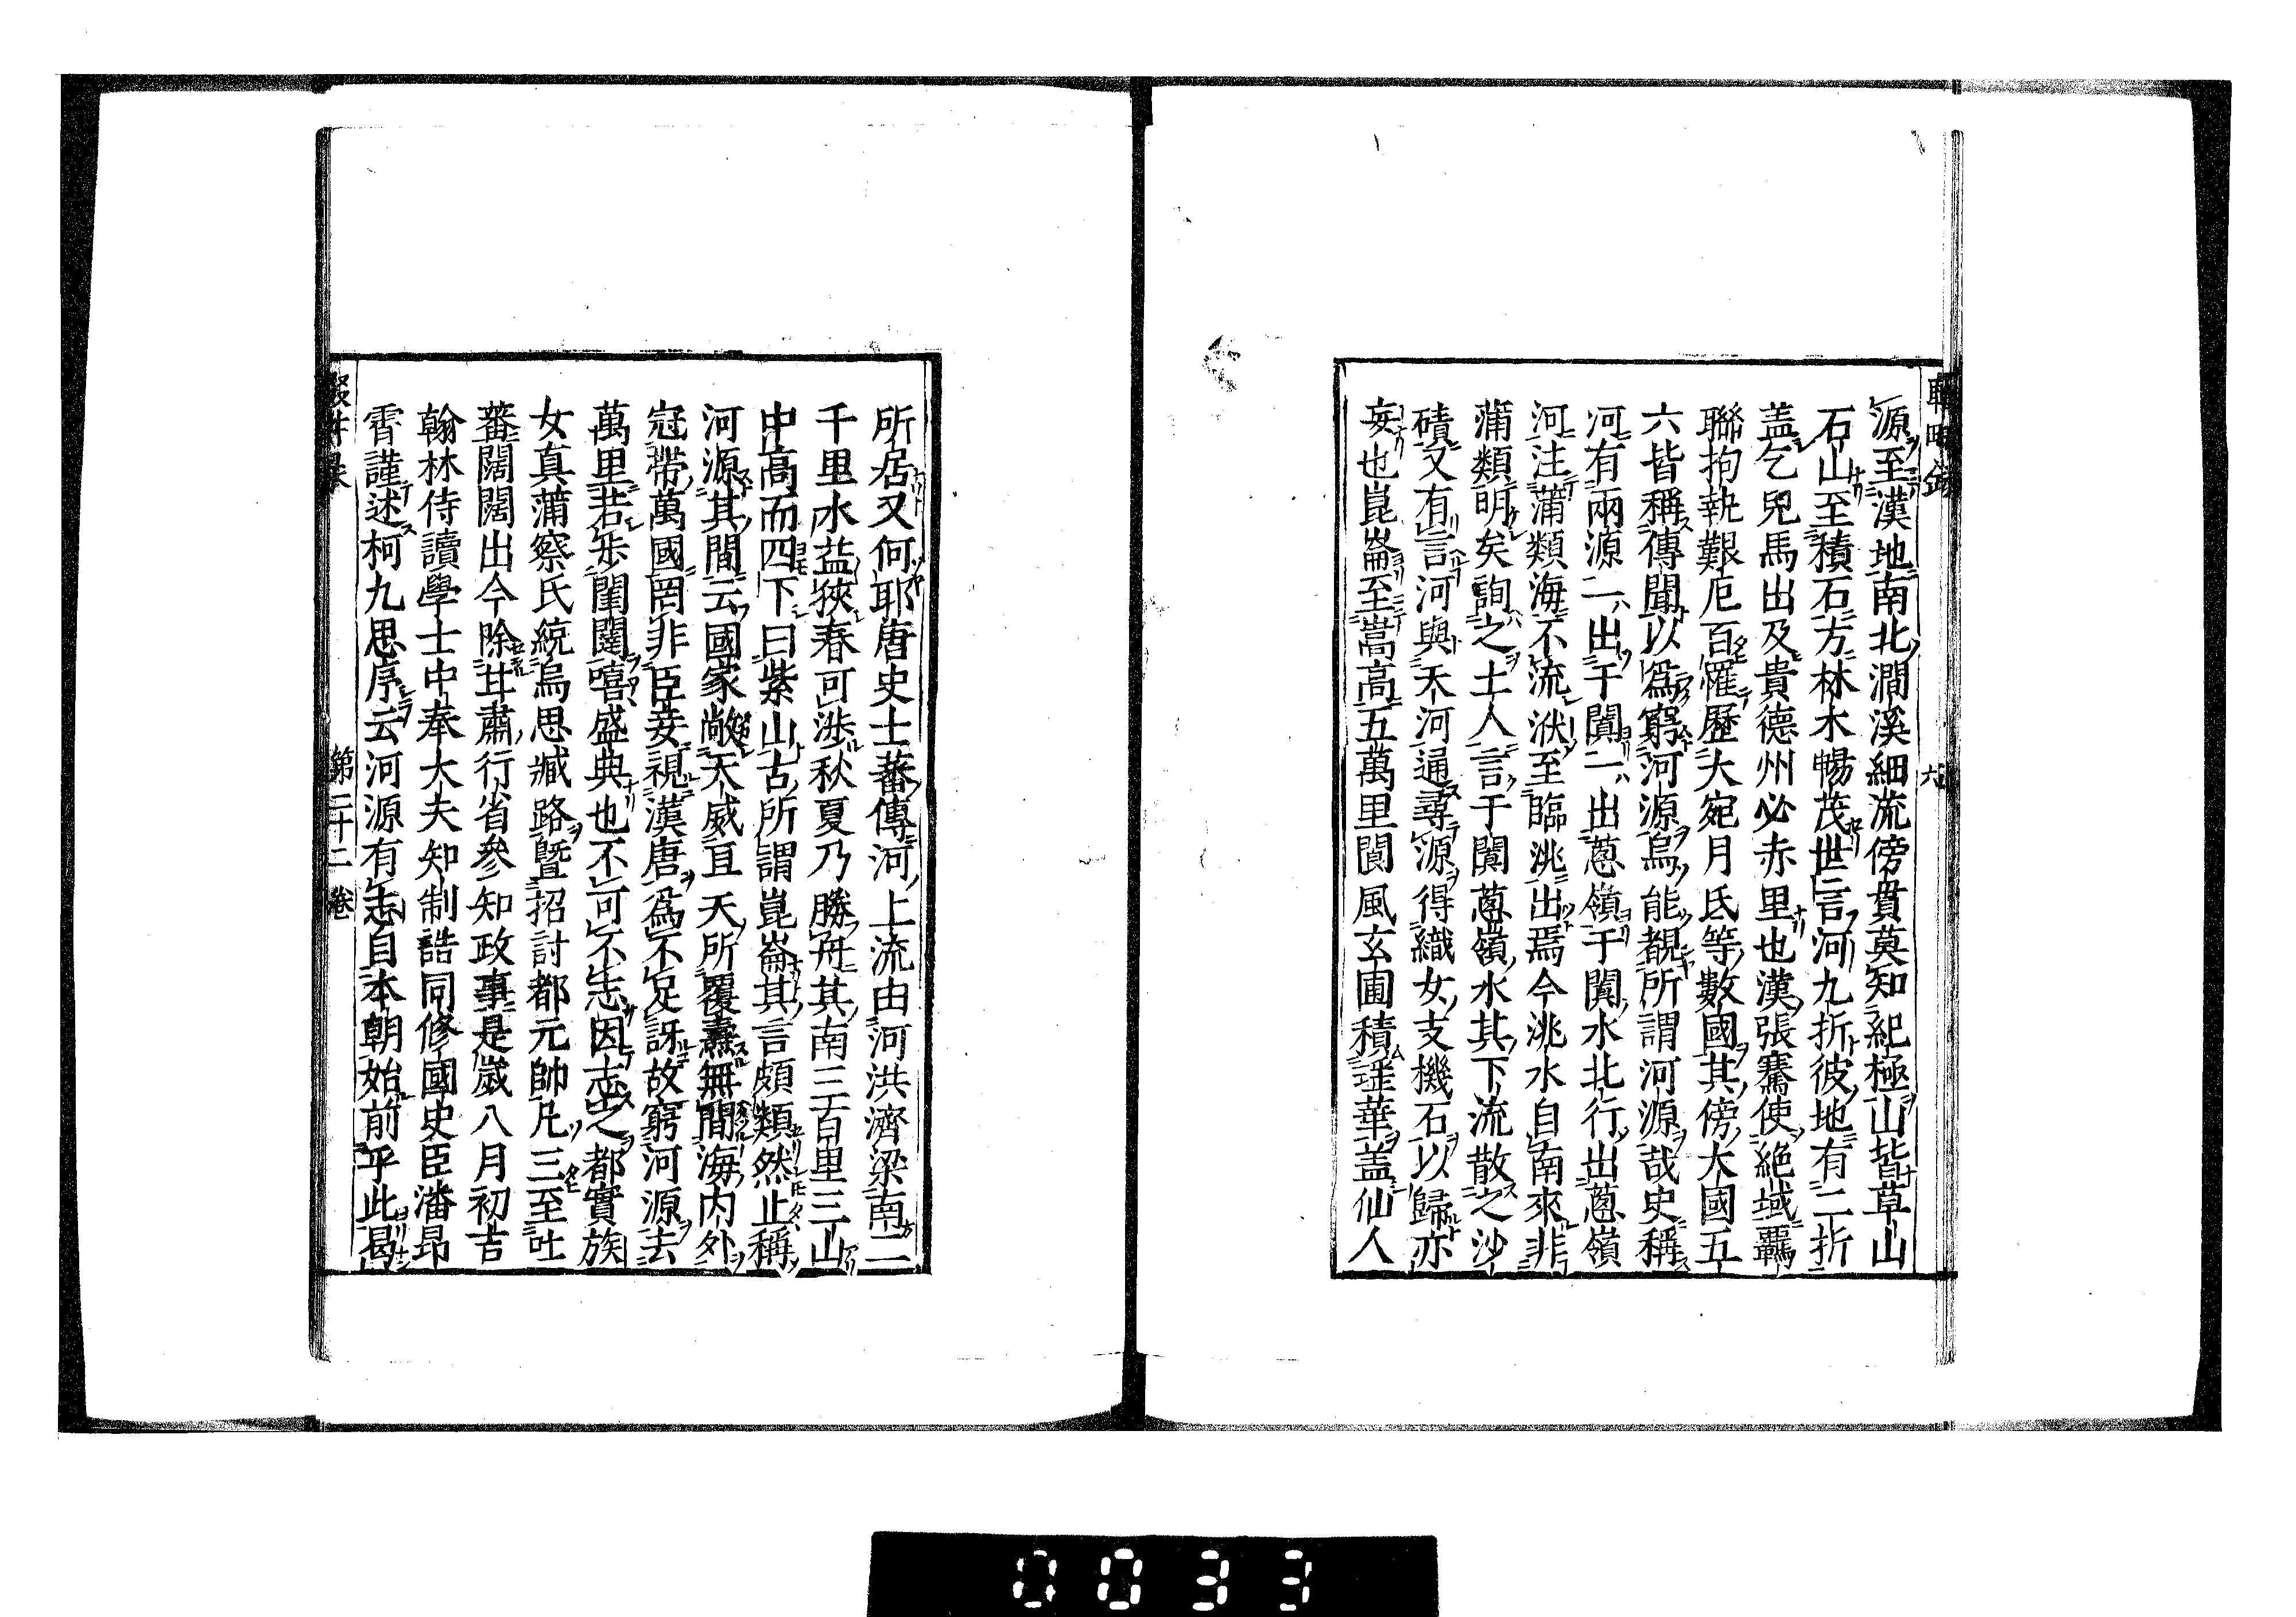 源至漢地南北澗溪細流傍貫莫知紀極山皆草山
石山至積石方林木暢茂世言河九折彼地有二折
盖乞兒馬出及貴德州必赤里也漢張騫使絶域羈
聯拘執艱厄百罹歷大宛月氏等數國其傍大國五
六皆稱傳聞以爲窮河源烏能覩所謂河源哉史稱
河有兩源一出于闐一出蔥嶺于闐水北行出蔥嶺
河注蒲類海不流洑至臨洮出焉今洮水自南來非
蒲類明矣詢之土人言于闐蔥嶺水其下流散之沙
磧又有言河與天河通尋源得織女支機石以歸亦
妄也崑崙至嵩高五萬里閬風玄圃積瑶華盖仙人
六
所居又何耶唐史土蕃傳河上流由河洪濟梁南二
千里水益狹春可渉秋夏乃勝舟其南三百里三山
中高而四下曰紫山古所謂崑崙其言頗類然止稱
河源其間云國家敞天威亘天所覆燾無間海内外
冠帶萬國罔非臣妾視漢唐爲不足訝故窮河源去
萬里若歩閨闥嘻盛典也不可不志因志之都實族
女真蒲察氏統烏思臧路暨招討都元帥凡三至吐
蕃闊闊出今除甘肅行省參知政事是歲八月初吉
翰林侍讀學士中奉大夫知制誥同修國史臣潘昂
霄謹述柯九思序云河源有志自本朝始前乎此曷
第二十二卷